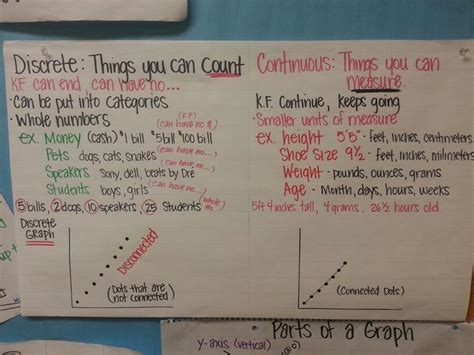 Discrete: Things you can count
KF can end, can have no...
·Can be put into categories
·Whole numbers (K.F)
(can have no $)
ex. Money (cash) $1 bill $5bill $100 bill
Pets dogs, cats, snakes (can have no...)
Speakers Sony, dell, beats by Dre (can have no...)
Students boys, girls (can have no...)
5 bills, 2 dogs, 10 speakers, 25 students (whole #s)
Discrete
Graph
Disconnected
(Dots that are
not connected)
Continuous: Things you can
measure.
K.F. Continue, keeps going
·Smaller units of measure
ex. height 5'5" - feet, inches, centimeters
Shoe Size 9½ - feet, inches, milimeters
Weight - pounds, ounces, grams
Age - Month, days, hours, weeks
5ft 4inches tall, 4 grams, 26½ hours old.
(Connected Dots)
Parts of a Graph
y-axis (vertical)